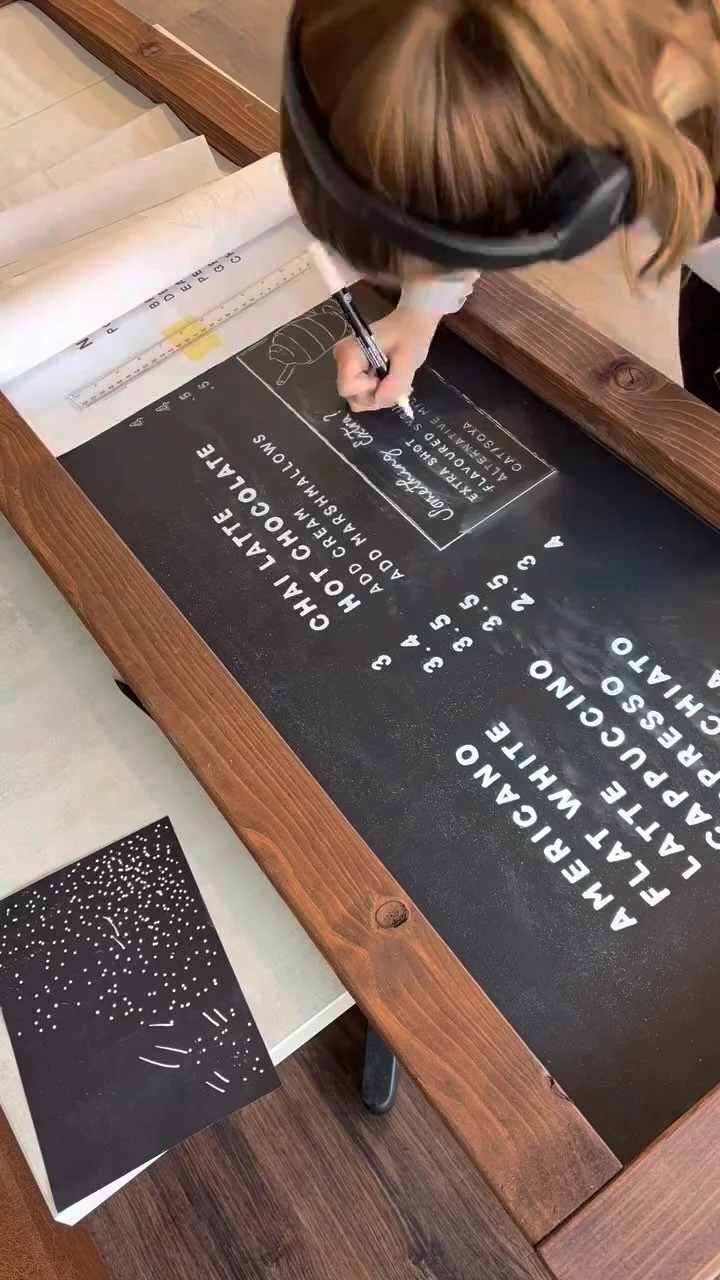 AMERICANO 3
FLAT WHITE 3.4
LATTE 3.5
CAPPUCCINO 3.5
PRESSO 2.5
CHIATO 3
A 4
CHAI LATTE 4
HOT CHOCOLATE 4
ADD CREAM .5
ADD MARSHMALLOWS .5
Something Extra?
EXTRA SHOT
FLAVOURED SY
ALTERNATIVE M
OAT/SOYA